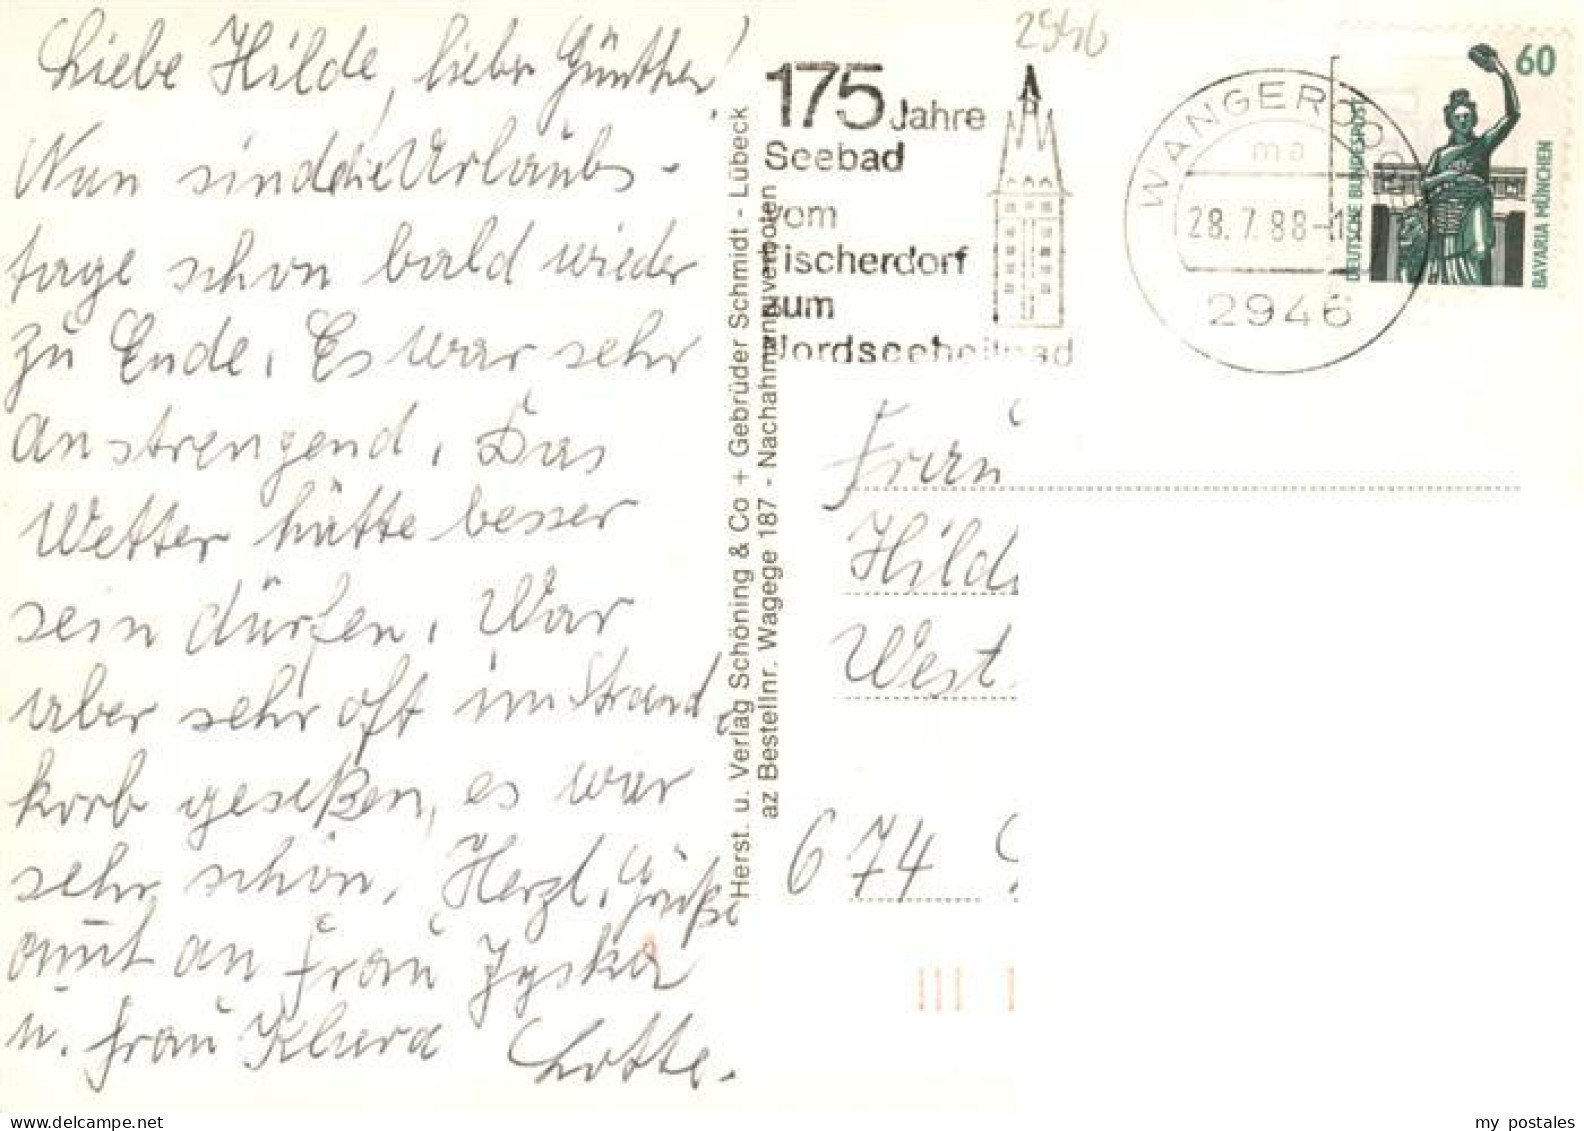 Liebe Hilde, lieber Günther!
Nun sind die Urlaubs-
tage schon bald wieder
zu Ende. Es war sehr
anstrengend. Das
Wetter hätte besser
sein dürfen. War
aber sehr oft im Strand
korb geseßen, es war
sehr schön. Herzl. Grüße
auch an Frau Zyska
u. Frau
Lotte.
Herst. u. Verlag Schöning & Co + Gebrüder Schmidt - Lübeck
az Bestellnr. Wagege 187 - Nachahmung verboten
2946
175 Jahre
Seebad
vom
Fischerdorf
zum
Nordseeheilbad
WANGEROOGE
ma
28.7.88-1
2946
60
DEUTSCHE BUNDESPOST
BAVARIA MÜNCHEN
Frau
Hild
West
674
my postales